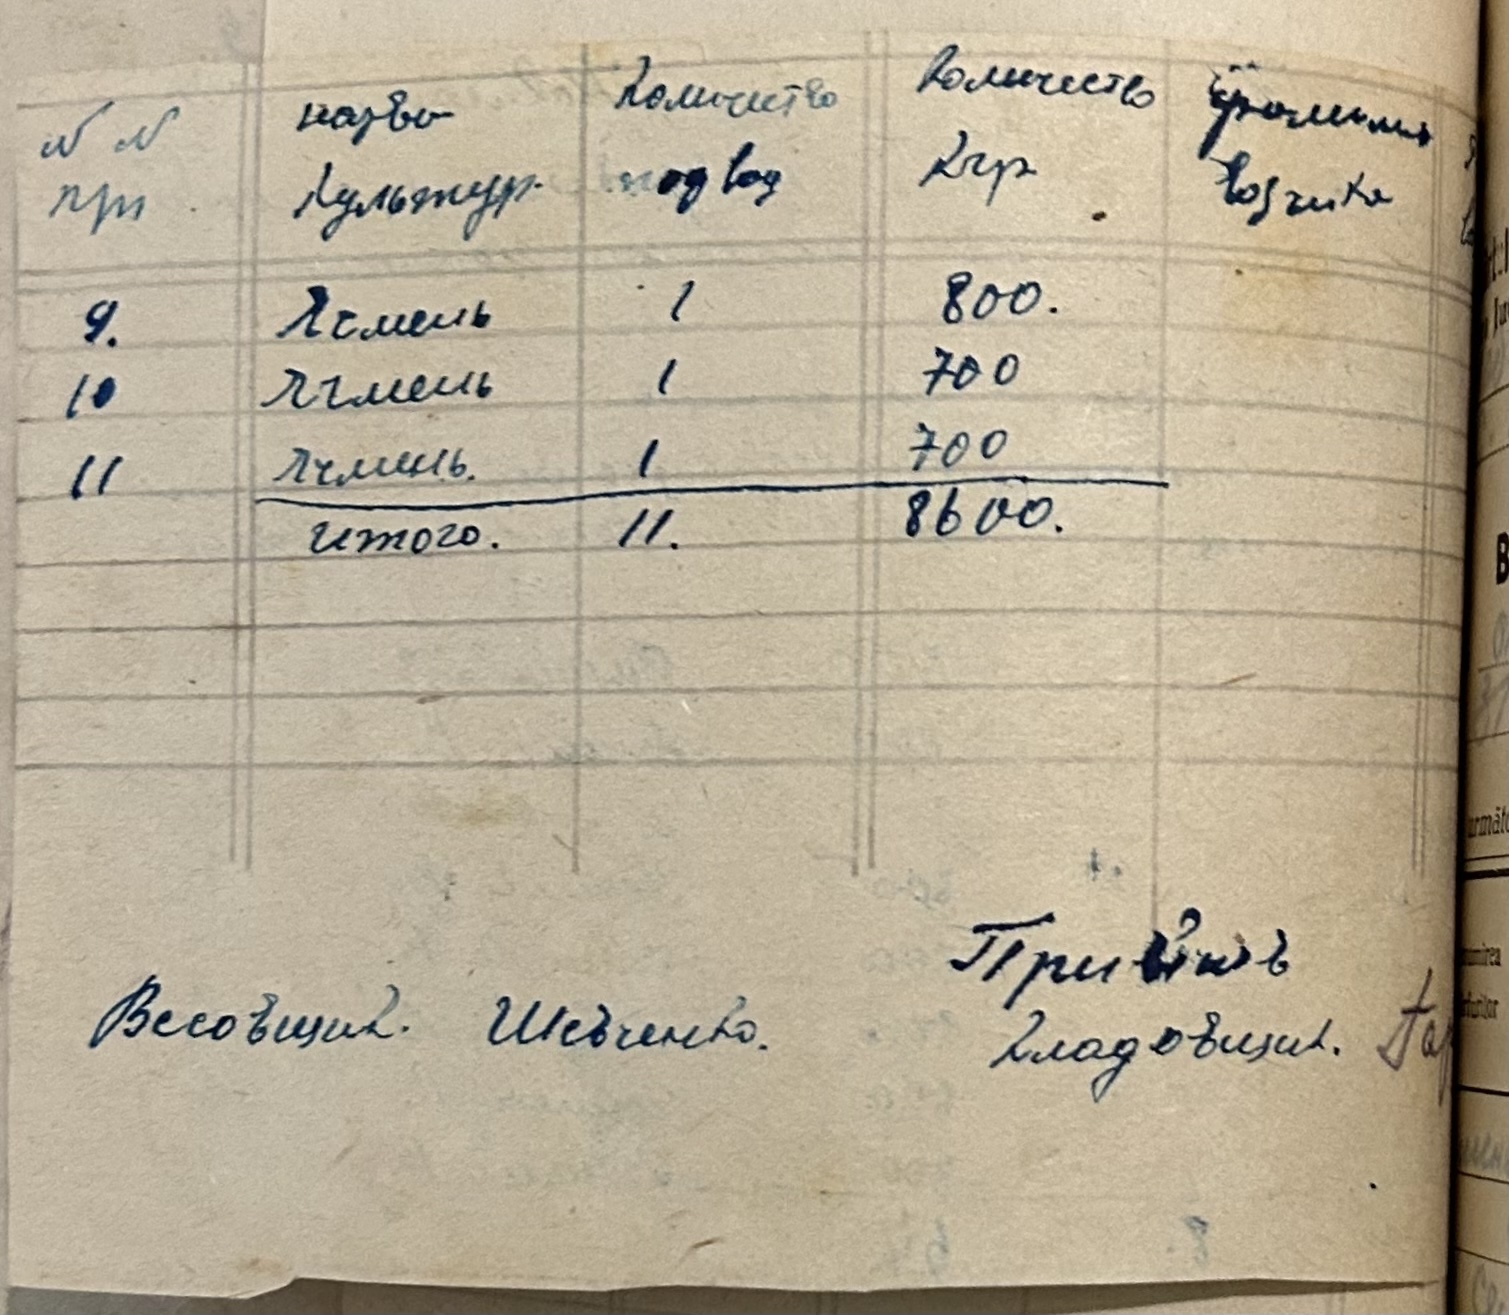 № № назва Количество Количество фамилия
п/п культур. подвод Кгр возчика
9. Ячмень 1 800.
10 Ячмень 1 700
11 Ячмень. 1 700
итого. 11. 8600.
Весовщик. Шевченко.
Принял
Кладовщик.